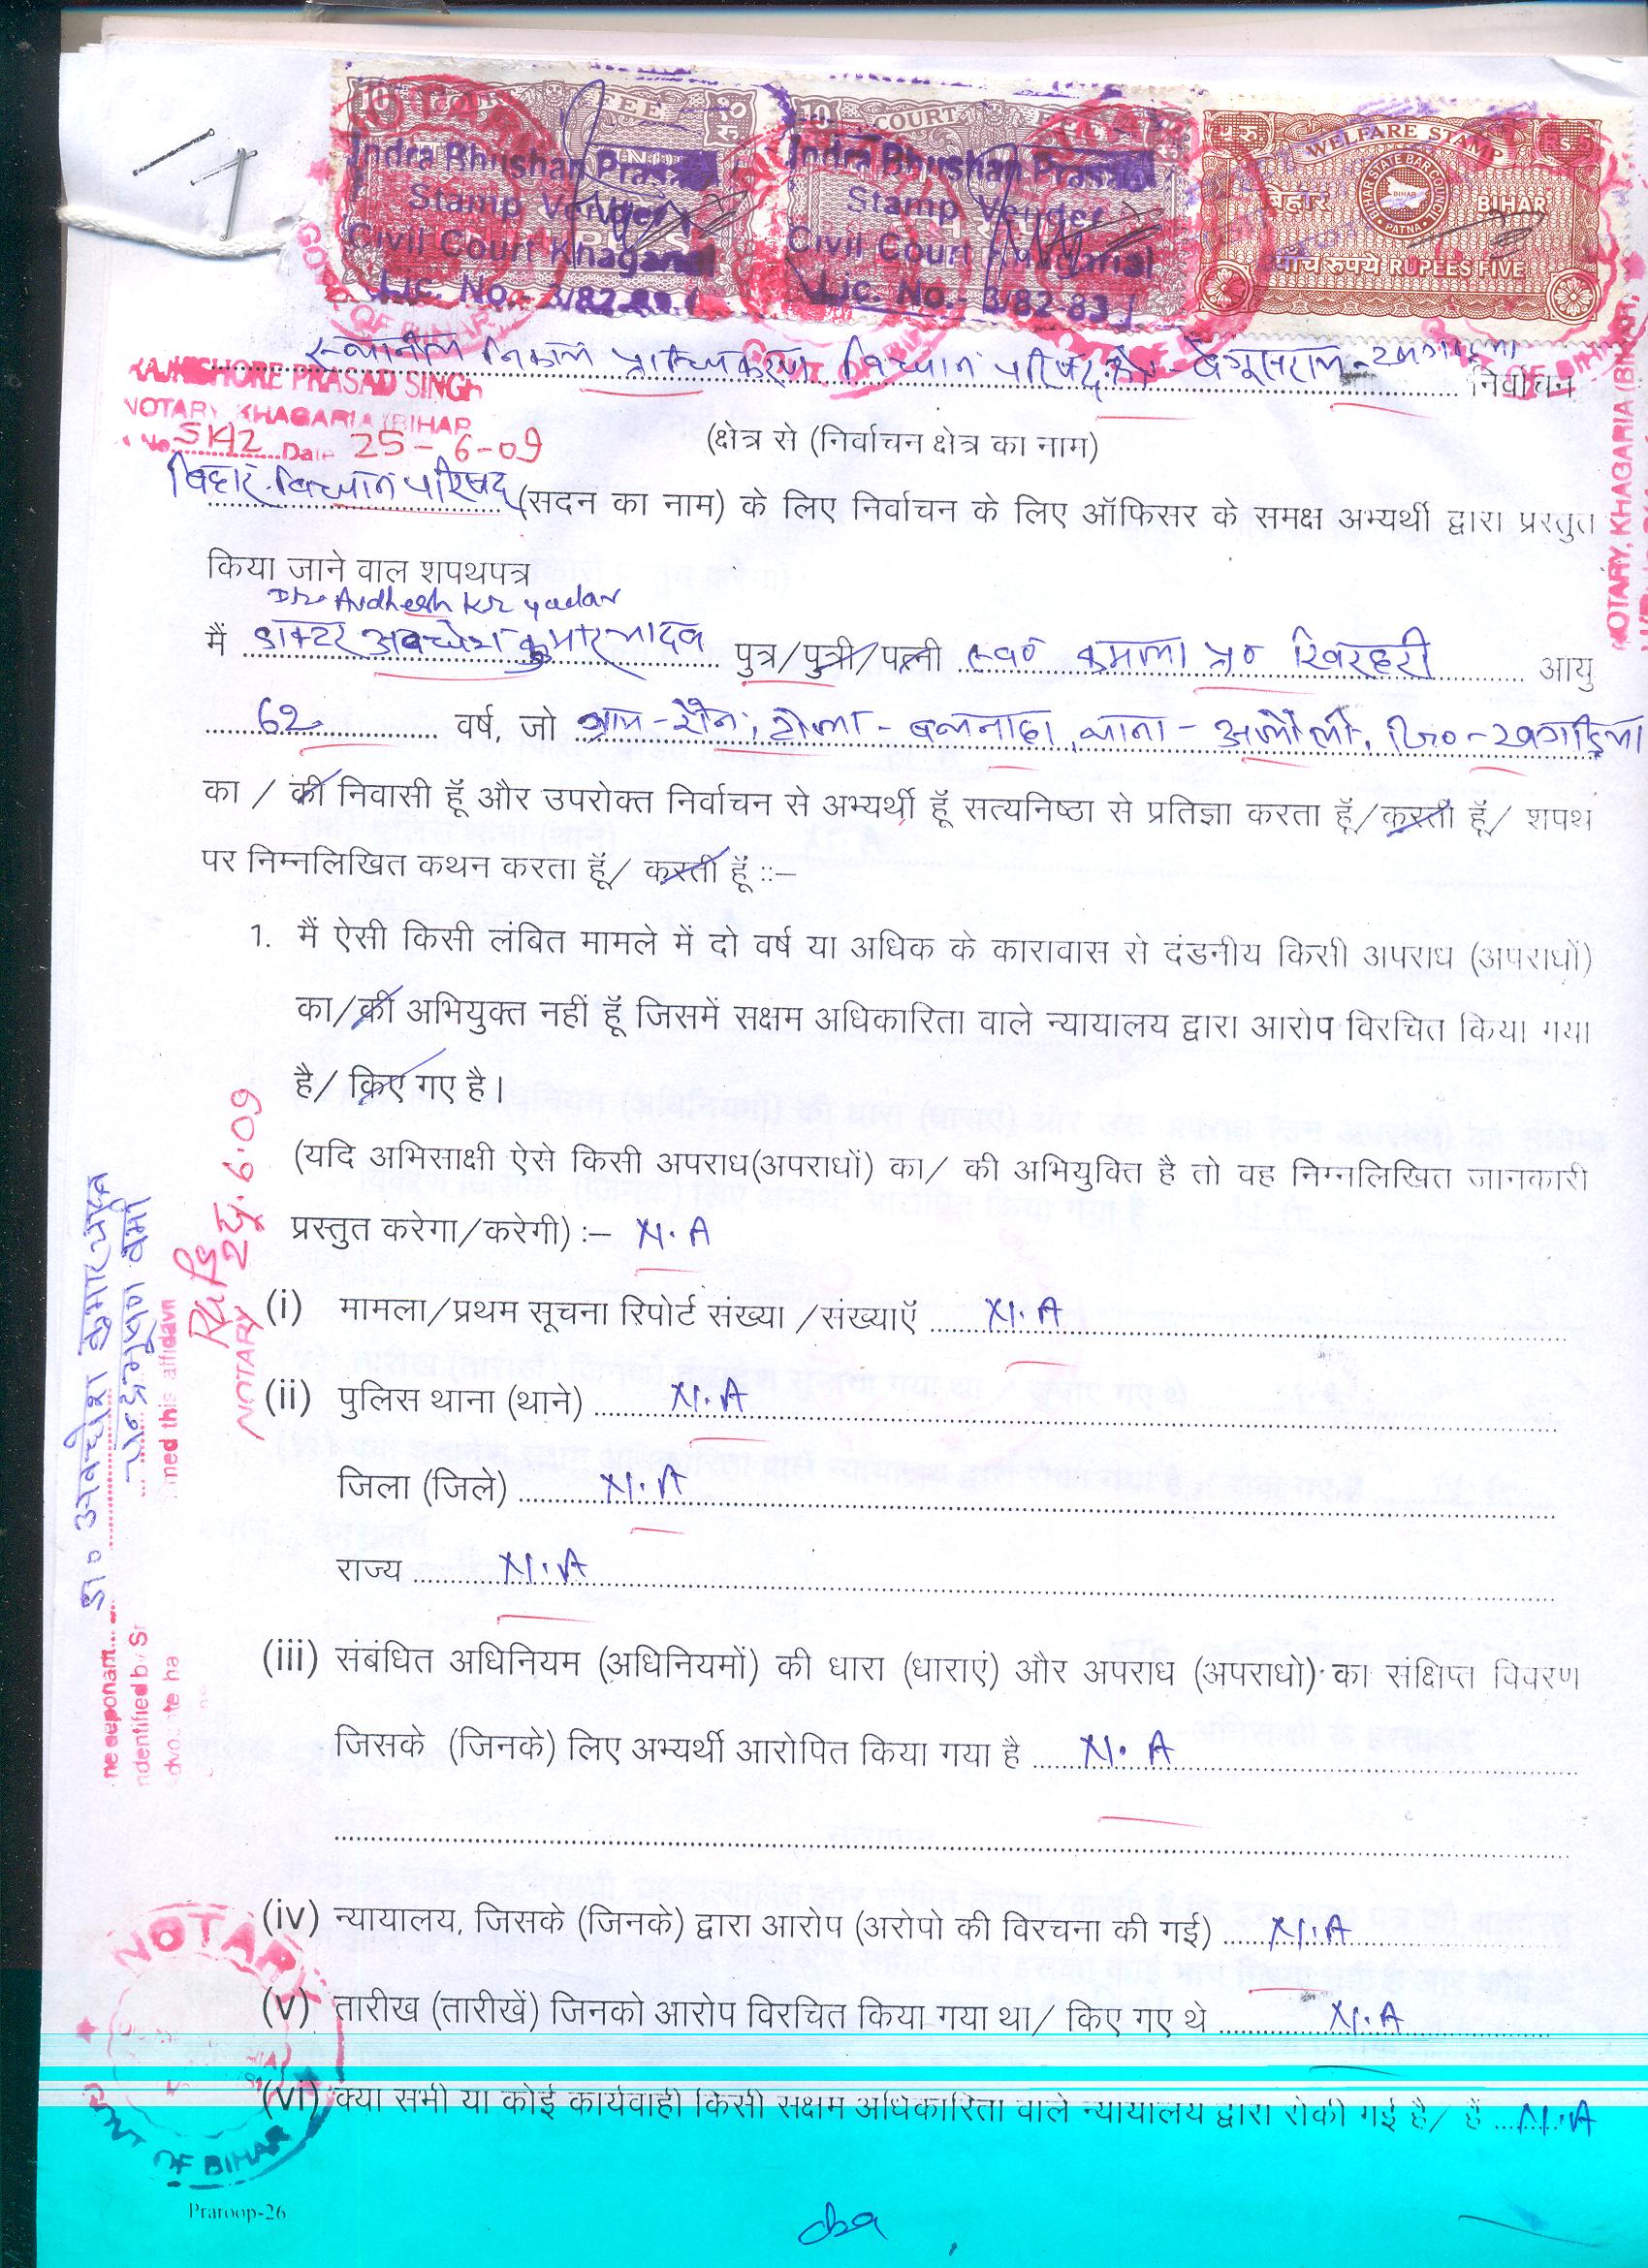 10 COURT FEE १० रु
10 COURT FEE
५ रु. WELFARE STAMP Rs. 5
Indra Bhushan Prasad
Stamp Vender
Civil Court Khagaria
Lic. No.- 3/82-83
Indra Bhushan Prasad
Stamp Vender
Civil Court Khagaria
Lic. No.- 3/82-83
BIHAR STATE BAR COUNCIL PATNA
बिहार BIHAR
पाँच रुपये RUPEES FIVE
स्थानीय निकाय प्राधिकरण विधान परिषद् क्षेत्र - बेगूसराय - खगड़िया निर्वाचन
RAJKISHORE PRASAD SINGH
NOTARY KHAGARIA (BIHAR
No. 5142 Date 25-6-09
(क्षेत्र से (निर्वाचन क्षेत्र का नाम)
बिहार विधान परिषद (सदन का नाम) के लिए निर्वाचन के लिए ऑफिसर के समक्ष अभ्यर्थी द्वारा प्रस्तुत
किया जाने वाल शपथपत्र
Dr. Avdhesh Kr yadav
मैं डाक्टर अवधेश कुमार यादव पुत्र/पुत्री/पत्नी स्व० कमला प्र० आयु
62 वर्ष, जो ग्राम - टोला - थाना - अलौली, जि० - खगड़िया
का / की निवासी हूँ और उपरोक्त निर्वाचन से अभ्यर्थी हूँ सत्यनिष्ठा से प्रतिज्ञा करता हूँ/करती हूँ/ शपथ
पर निम्नलिखित कथन करता हूँ/ करती हूँ ::–
1. मैं ऐसी किसी लंबित मामले में दो वर्ष या अधिक के कारावास से दंडनीय किसी अपराध (अपराधों)
का/की अभियुक्त नहीं हूँ जिसमें सक्षम अधिकारिता वाले न्यायालय द्वारा आरोप विरचित किया गया
है/ किए गए है।
(यदि अभिसाक्षी ऐसे किसी अपराध(अपराधों) का/ की अभियुवित है तो वह निम्नलिखित जानकारी
प्रस्तुत करेगा/करेगी) :– N.A
(i) मामला/प्रथम सूचना रिपोर्ट संख्या /संख्याएँ N.A
(ii) पुलिस थाना (थाने) N.A
जिला (जिले) N.A
राज्य N.A
(iii) संबंधित अधिनियम (अधिनियमों) की धारा (धाराएं) और अपराध (अपराधो) का संक्षिप्त विवरण
जिसके (जिनके) लिए अभ्यर्थी आरोपित किया गया है N.A
(iv) न्यायालय, जिसके (जिनके) द्वारा आरोप (अरोपो की विरचना की गई) N.A
(v) तारीख (तारीखें) जिनको आरोप विरचित किया गया था/ किए गए थे N.A
(vi) क्या सभी या कोई कार्यवाही किसी सक्षम अधिकारिता वाले न्यायालय द्वारा रोकी गई है/ हैं N.A
डा० अवधेश कुमार यादव
चन्द्रभूषण वर्मा
NOTARY
NOTARY, KHAGARIA (BIHAR
NOTAR
OF BIHAR
Praroop-26